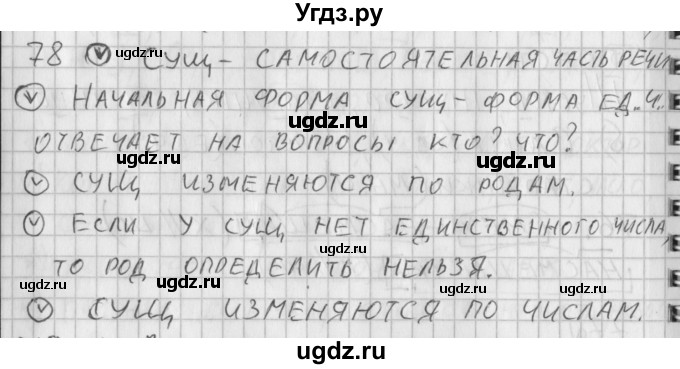 Угдз.ру
78 ✓ СУЩ- САМОСТОЯТЕЛЬНАЯ ЧАСТЬ РЕЧИ
gdz.ru
✓ НАЧАЛЬНАЯ ФОРМА СУЩ- ФОРМА ЕД.Ч.
gdz.ru
ОТВЕЧАЕТ НА ВОПРОСЫ КТО? ЧТО?
gdz.ru
✓ СУЩ ИЗМЕНЯЮТСЯ ПО РОДАМ.
gdz.ru
✓ ЕСЛИ У СУЩ НЕТ ЕДИНСТВЕННОГО ЧИСЛА,
gdz.ru
ТО РОД ОПРЕДЕЛИТЬ НЕЛЬЗЯ.
gdz.ru gdz.ru
✓ СУЩ ИЗМЕНЯЮТСЯ ПО ЧИСЛАМ.
ugdz.ru
ugdz.ru